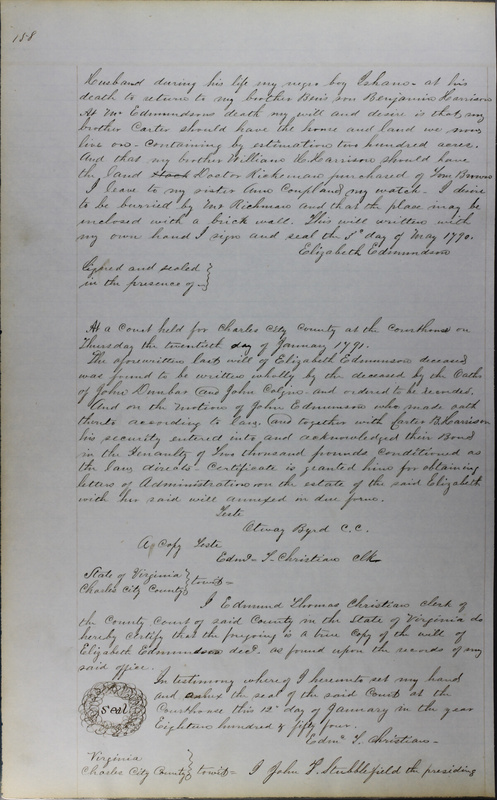 158
Husband during his life my negro boy Ishano - at his
death to return to my brother Ben's son Benjamin Harrison
At Mr Edmundsons death my will and desire is that my
brother Carter should have the house and land we now
live on - containing by estimation two hundred acres.
And that my brother William H. Harrison should have
the land Doctor Rickeman purchased of Tom Brown
I leave to my sister Ann Coupland my watch - I desire
to be burried by Mr Richman and that the place may be
inclosed with a brick wall. This will written with
my own hand I sign and seal the 5th day of May 1790.
Elizabeth Edmundson
Signed and sealed }
in the presence of - }
At a Court held for Charles City County at the Courthouse on
Thursday the twentieth day of January 1791.
The aforewritten last will of Elizabeth Edmunson deceased
was found to be written wholly by the deceased by the Oaths
of John Dunbar and John Colgin - and ordered to be recorded.
And on the motion of John Edmunson who made oath
thereto according to law, and together with Carter B. Harrison
his security entered into and acknowledged their Bond
in the Penalty of Two thousand pounds conditioned as
the law directs - Certificate is granted him for obtaining
letters of Administration on the estate of the said Elizabeth
with her said will annexed in due form.
Teste
Otway Byrd C. C.
A Copy Teste
Edmd T. Christian Clk
State of Virginia }
Charles City County } towit =
I Edmund Thomas Christian clerk of
the County Court of said County in the State of Virginia do
hereby certify that the foregoing is a true Copy of the will of
Elizabeth Edmundson decd. as found upon the records of my
said office.
In testimony whereof I hereunto set my hand
and annex the seal of the said Court at the
Courthouse this 12th day of January in the year
Eighteen hundred & fifty four.
Seal
Edmd T. Christian -
Virginia }
Charles City County } towit = I John F. Stubblefield the presiding